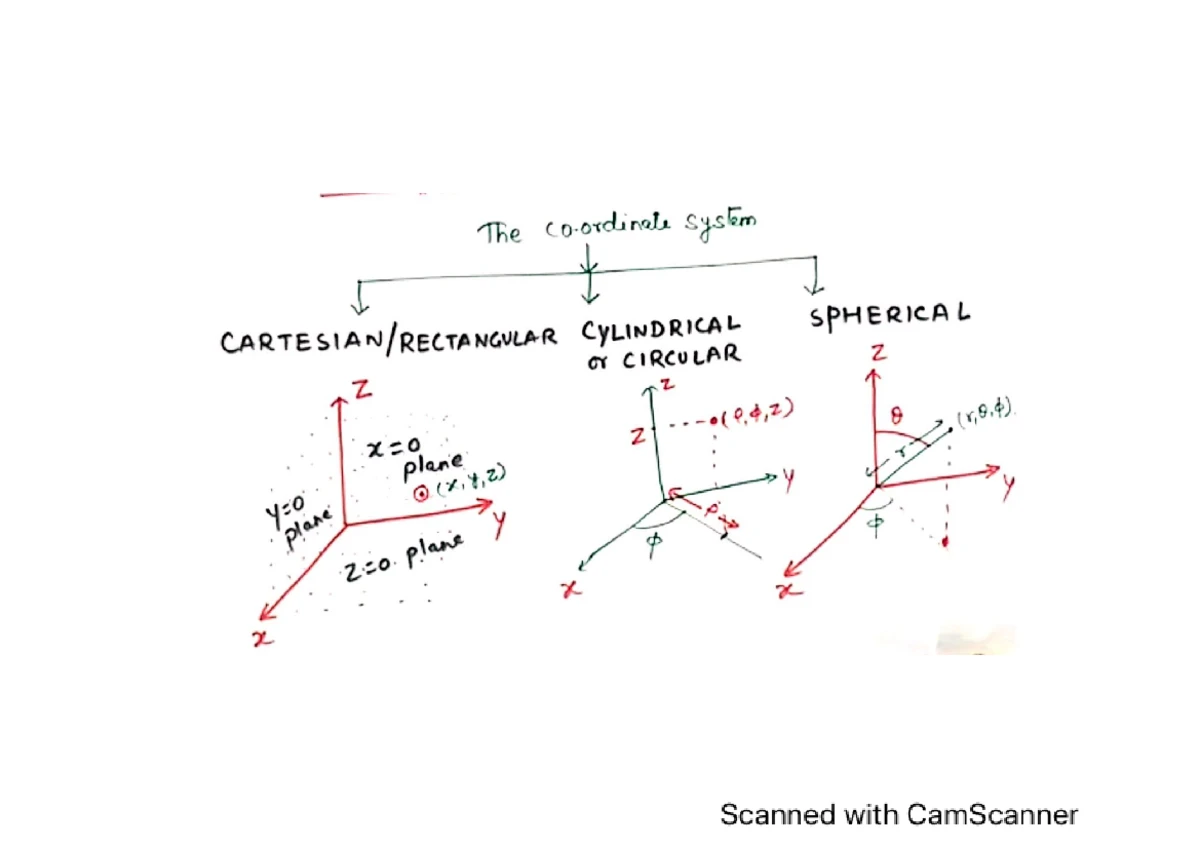 The co-ordinate system
CARTESIAN/RECTANGULAR
CYLINDRICAL
or CIRCULAR
SPHERICAL
Z
x=0
plane
(x,y,z)
y=0
plane
Y
z=0 plane
x
Z
Z
(ρ,ϕ,z)
Y
ρ
ϕ
x
Z
θ
(r,θ,ϕ)
r
Y
ϕ
x
Scanned with CamScanner